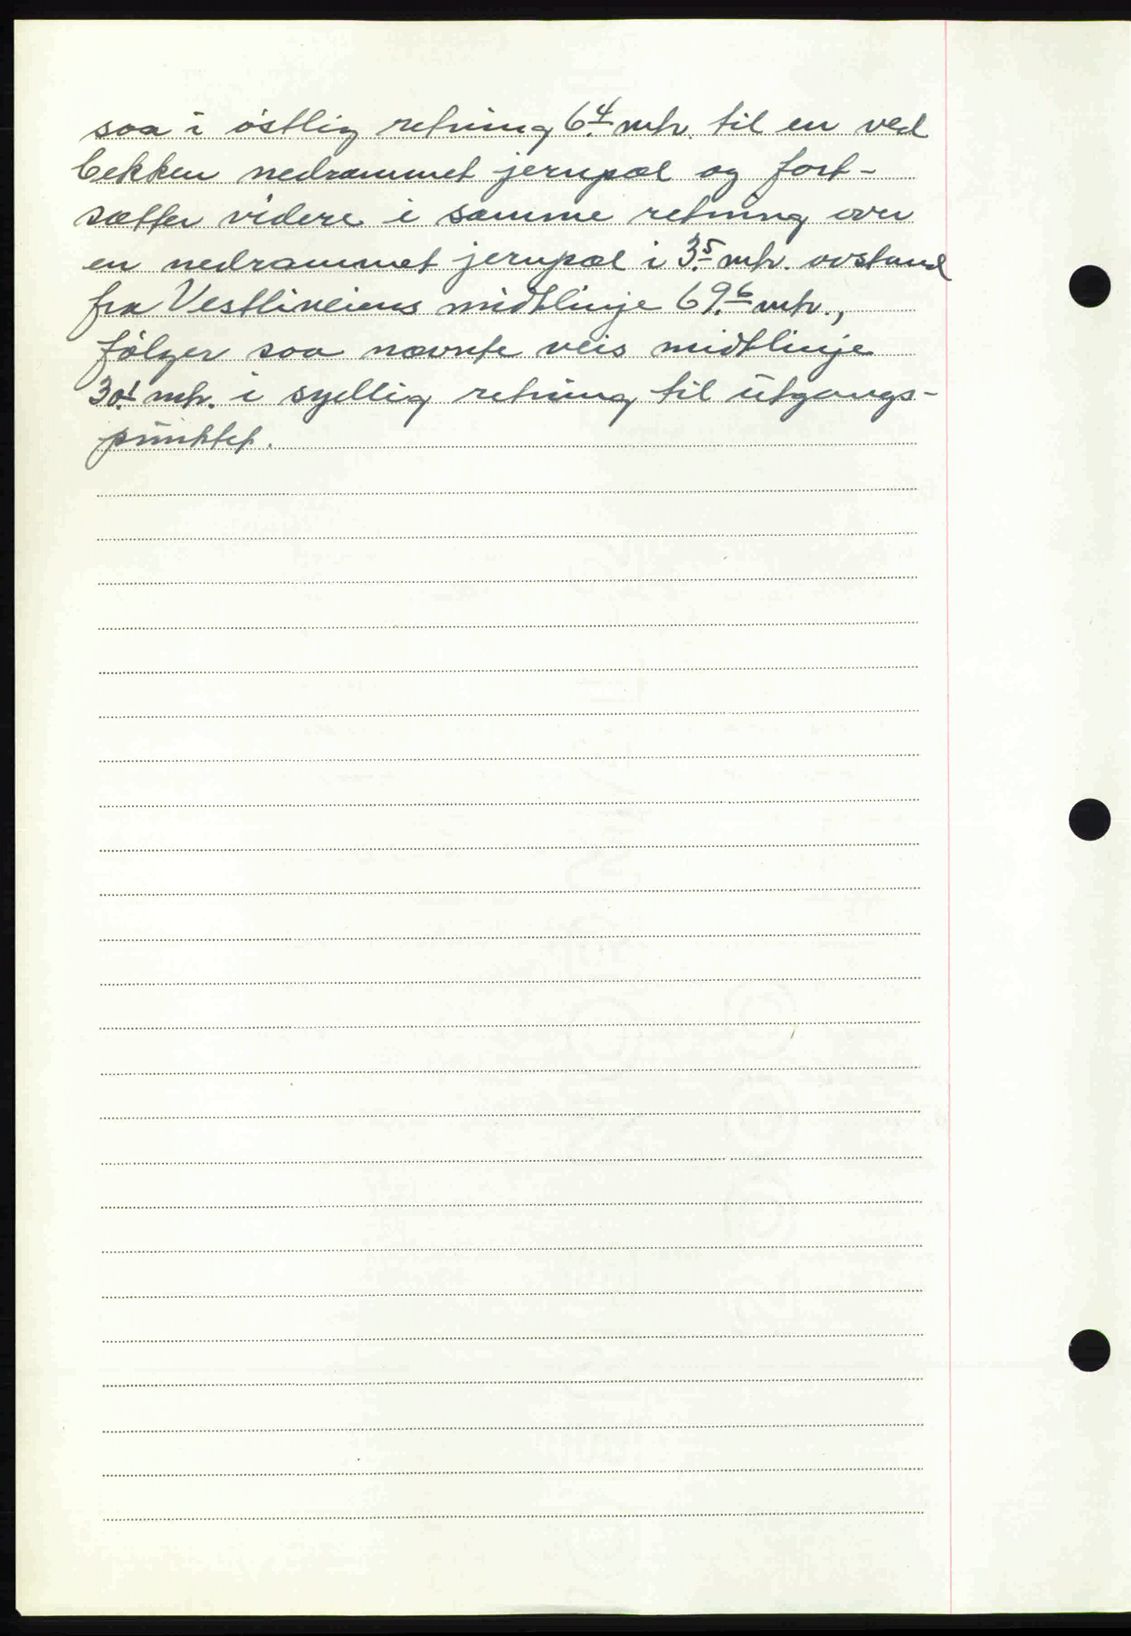 saa i östlig retning 6.4 mtr. til en ved
bekken nedrammet jernpæl og fort-
sætter videre i samme retning over
en nedrammet jernpæl i 3.5 mtr. avstand
fra Vestliveiens midtlinje 69.6 mtr.,
følger saa nævnte veis midtlinje
30.1 mtr. i sydlig retning til utgangs-
punktet.